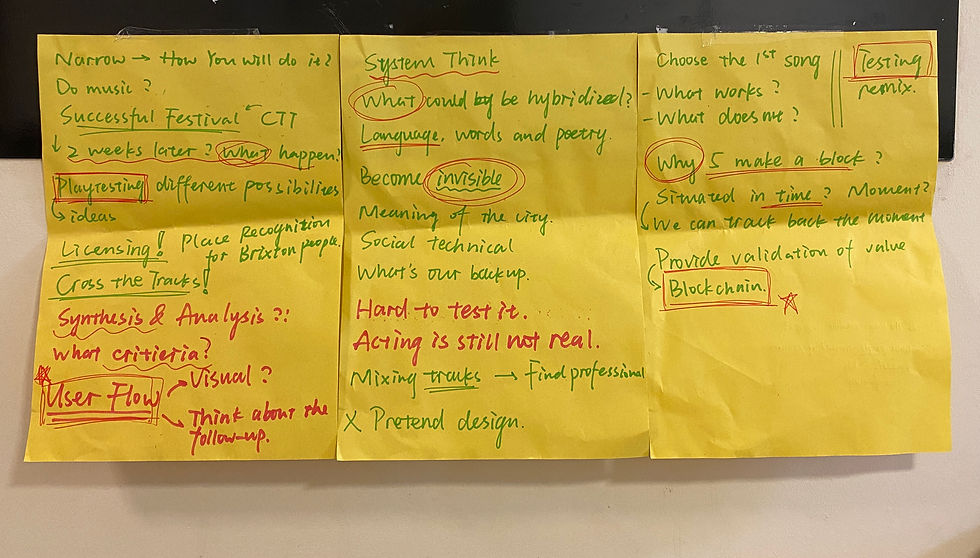 Narrow → How You will do it?
Do music?
Successful Festival ← CTT
↳ 2 weeks later? What happen?
Playtesting different possibilities
↳ ideas
Licensing! Place Recognition
for Brixton people.
Cross the Tracks!
Synthesis & Analysis ?!
what critieria?
User Flow
→ Visual?
→ Think about the
follow-up.
System Think
What could be hybridized?
Language, words and poetry.
Become invisible
Meaning of the city.
Social technical
What's our backup.
Hard to test it.
Acting is still not real.
Mixing tracks → Find professional
X Pretend design.
Choose the 1st song
- What works?
- What does not?
Testing
remix.
Why 5 make a block?
Situated in time? Moment?
↳ We can track back the moment
Provide validation of value
↳ Blockchain.